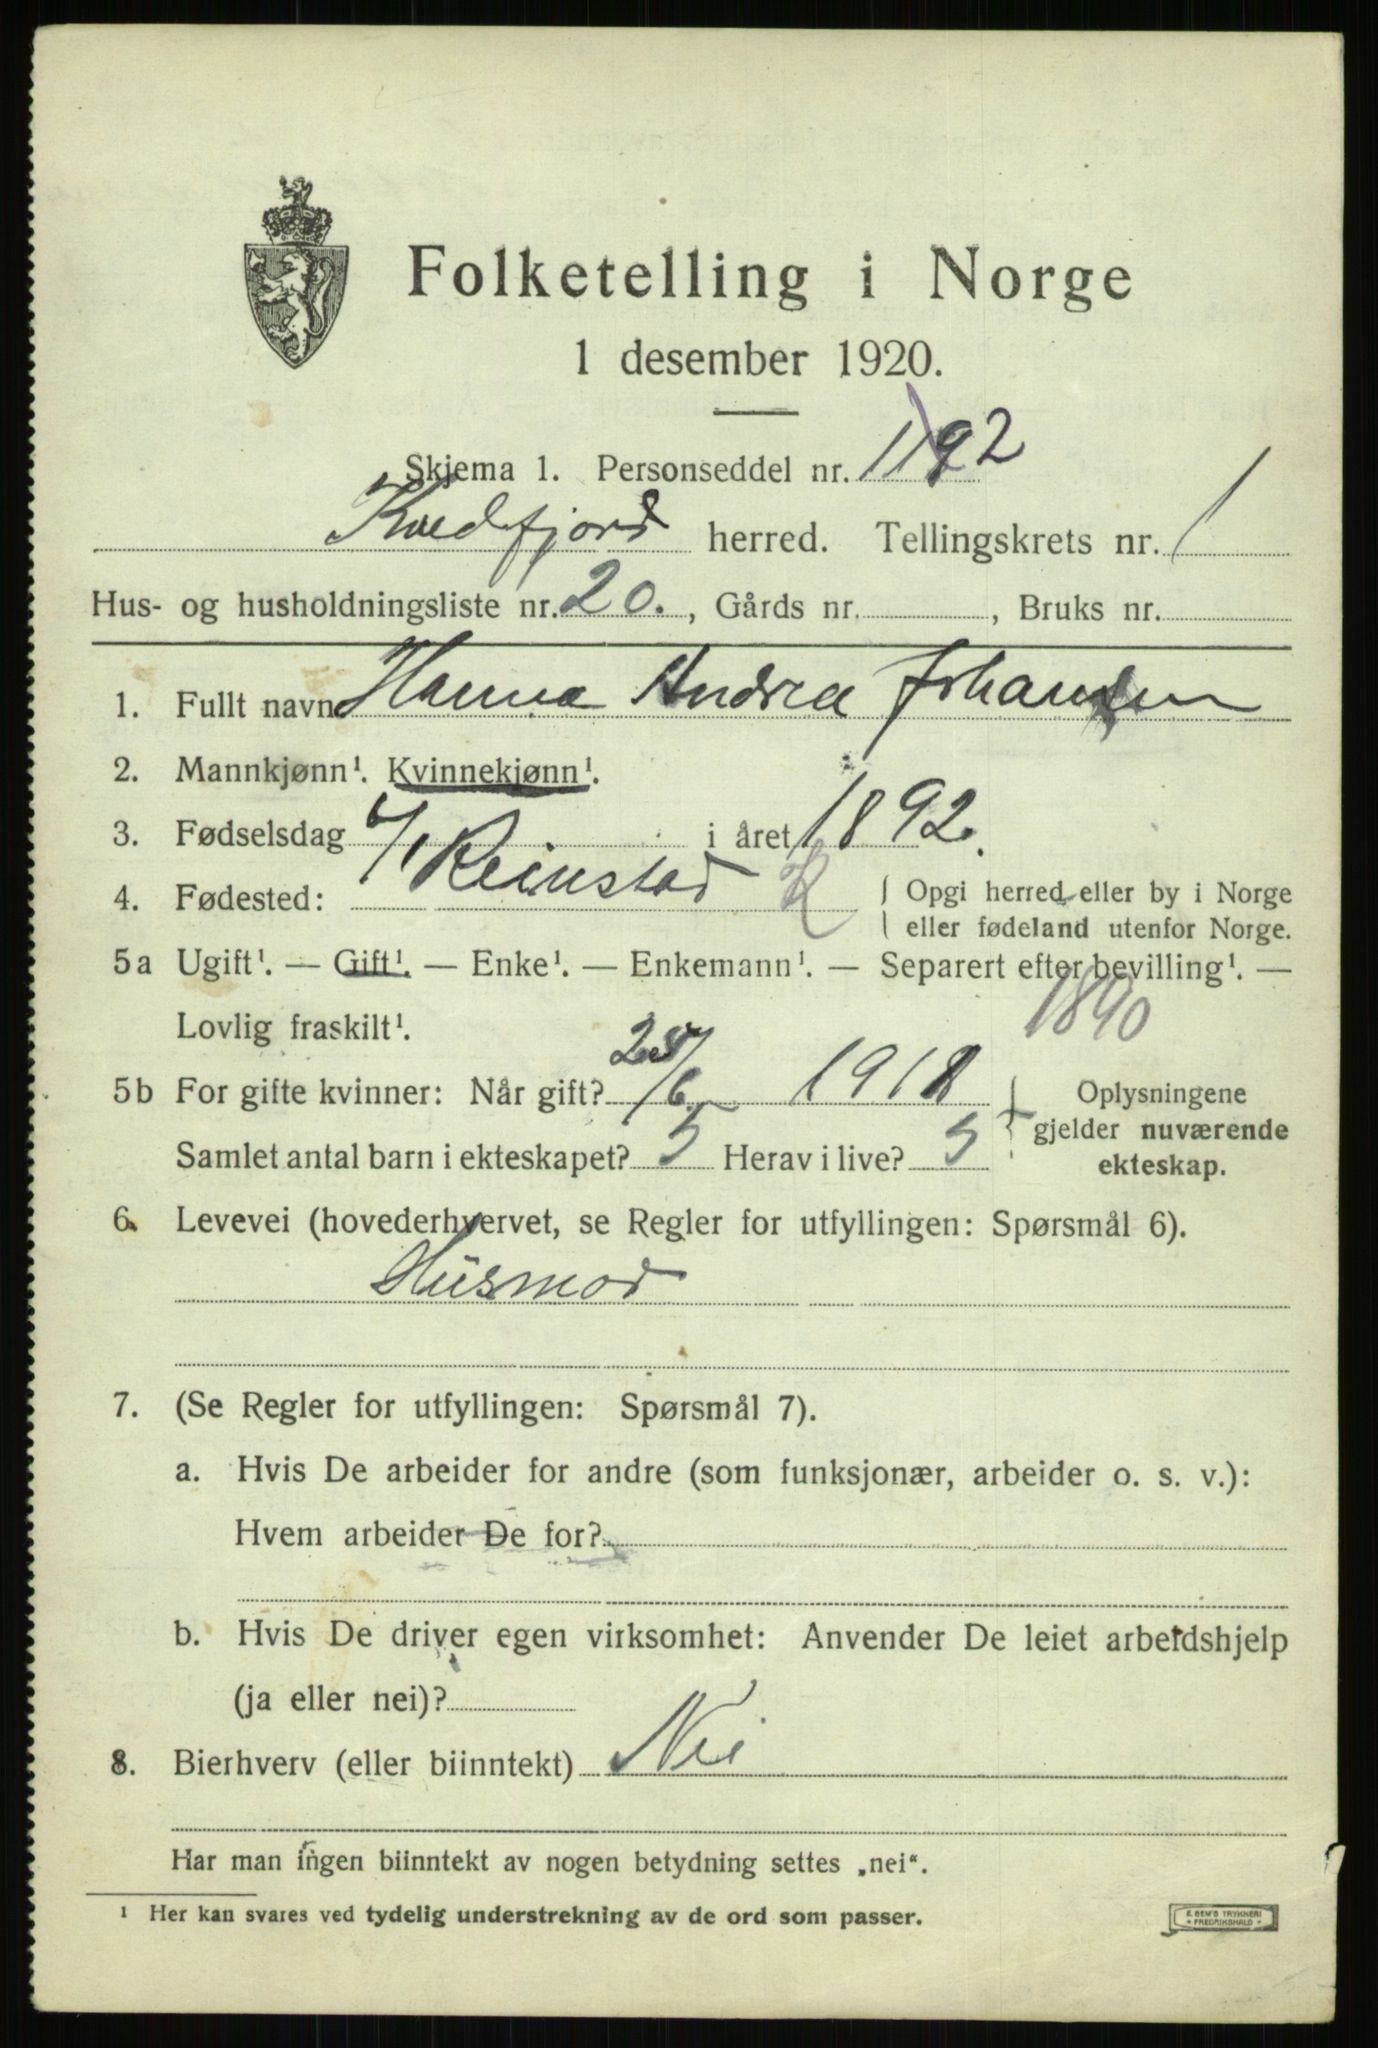 Folketelling i Norge
1 desember 1920.
Skjema 1. Personseddel nr. 192
Kvedfjord herred. Tellingskrets nr. 1
Hus- og husholdningsliste nr. 20. , Gårds nr. , Bruks nr.
1. Fullt navn Hanna Andrea Johansen
2. Mannkjønn¹. Kvinnekjønn¹.
3. Fødselsdag 4/1 i året 1892.
4. Fødested: Reinstad K { Opgi herred eller by i Norge
eller fødeland utenfor Norge.
5a Ugift¹. — Gift¹. — Enke¹. — Enkemann¹. — Separert efter bevilling¹. —
Lovlig fraskilt¹. 1890
5b For gifte kvinner: Når gift? /6 191 } Oplysningene
gjelder nuværende
ekteskap.
Samlet antal barn i ekteskapet? 5 Herav i live? 5
6. Levevei (hovederhvervet, se Regler for utfyllingen: Spørsmål 6).
Husmod
7. (Se Regler for utfyllingen: Spørsmål 7).
a. Hvis De arbeider for andre (som funksjonær, arbeider o. s. v.):
Hvem arbeider De for?
b. Hvis De driver egen virksomhet: Anvender De leiet arbeidshjelp
(ja eller nei)?
8. Bierhverv (eller biinntekt) Nei
Har man ingen biinntekt av nogen betydning settes „nei“.
¹ Her kan svares ved tydelig understrekning av de ord som passer.
E. SEM'S TRYKKERI
* FREDRIKSHALD *